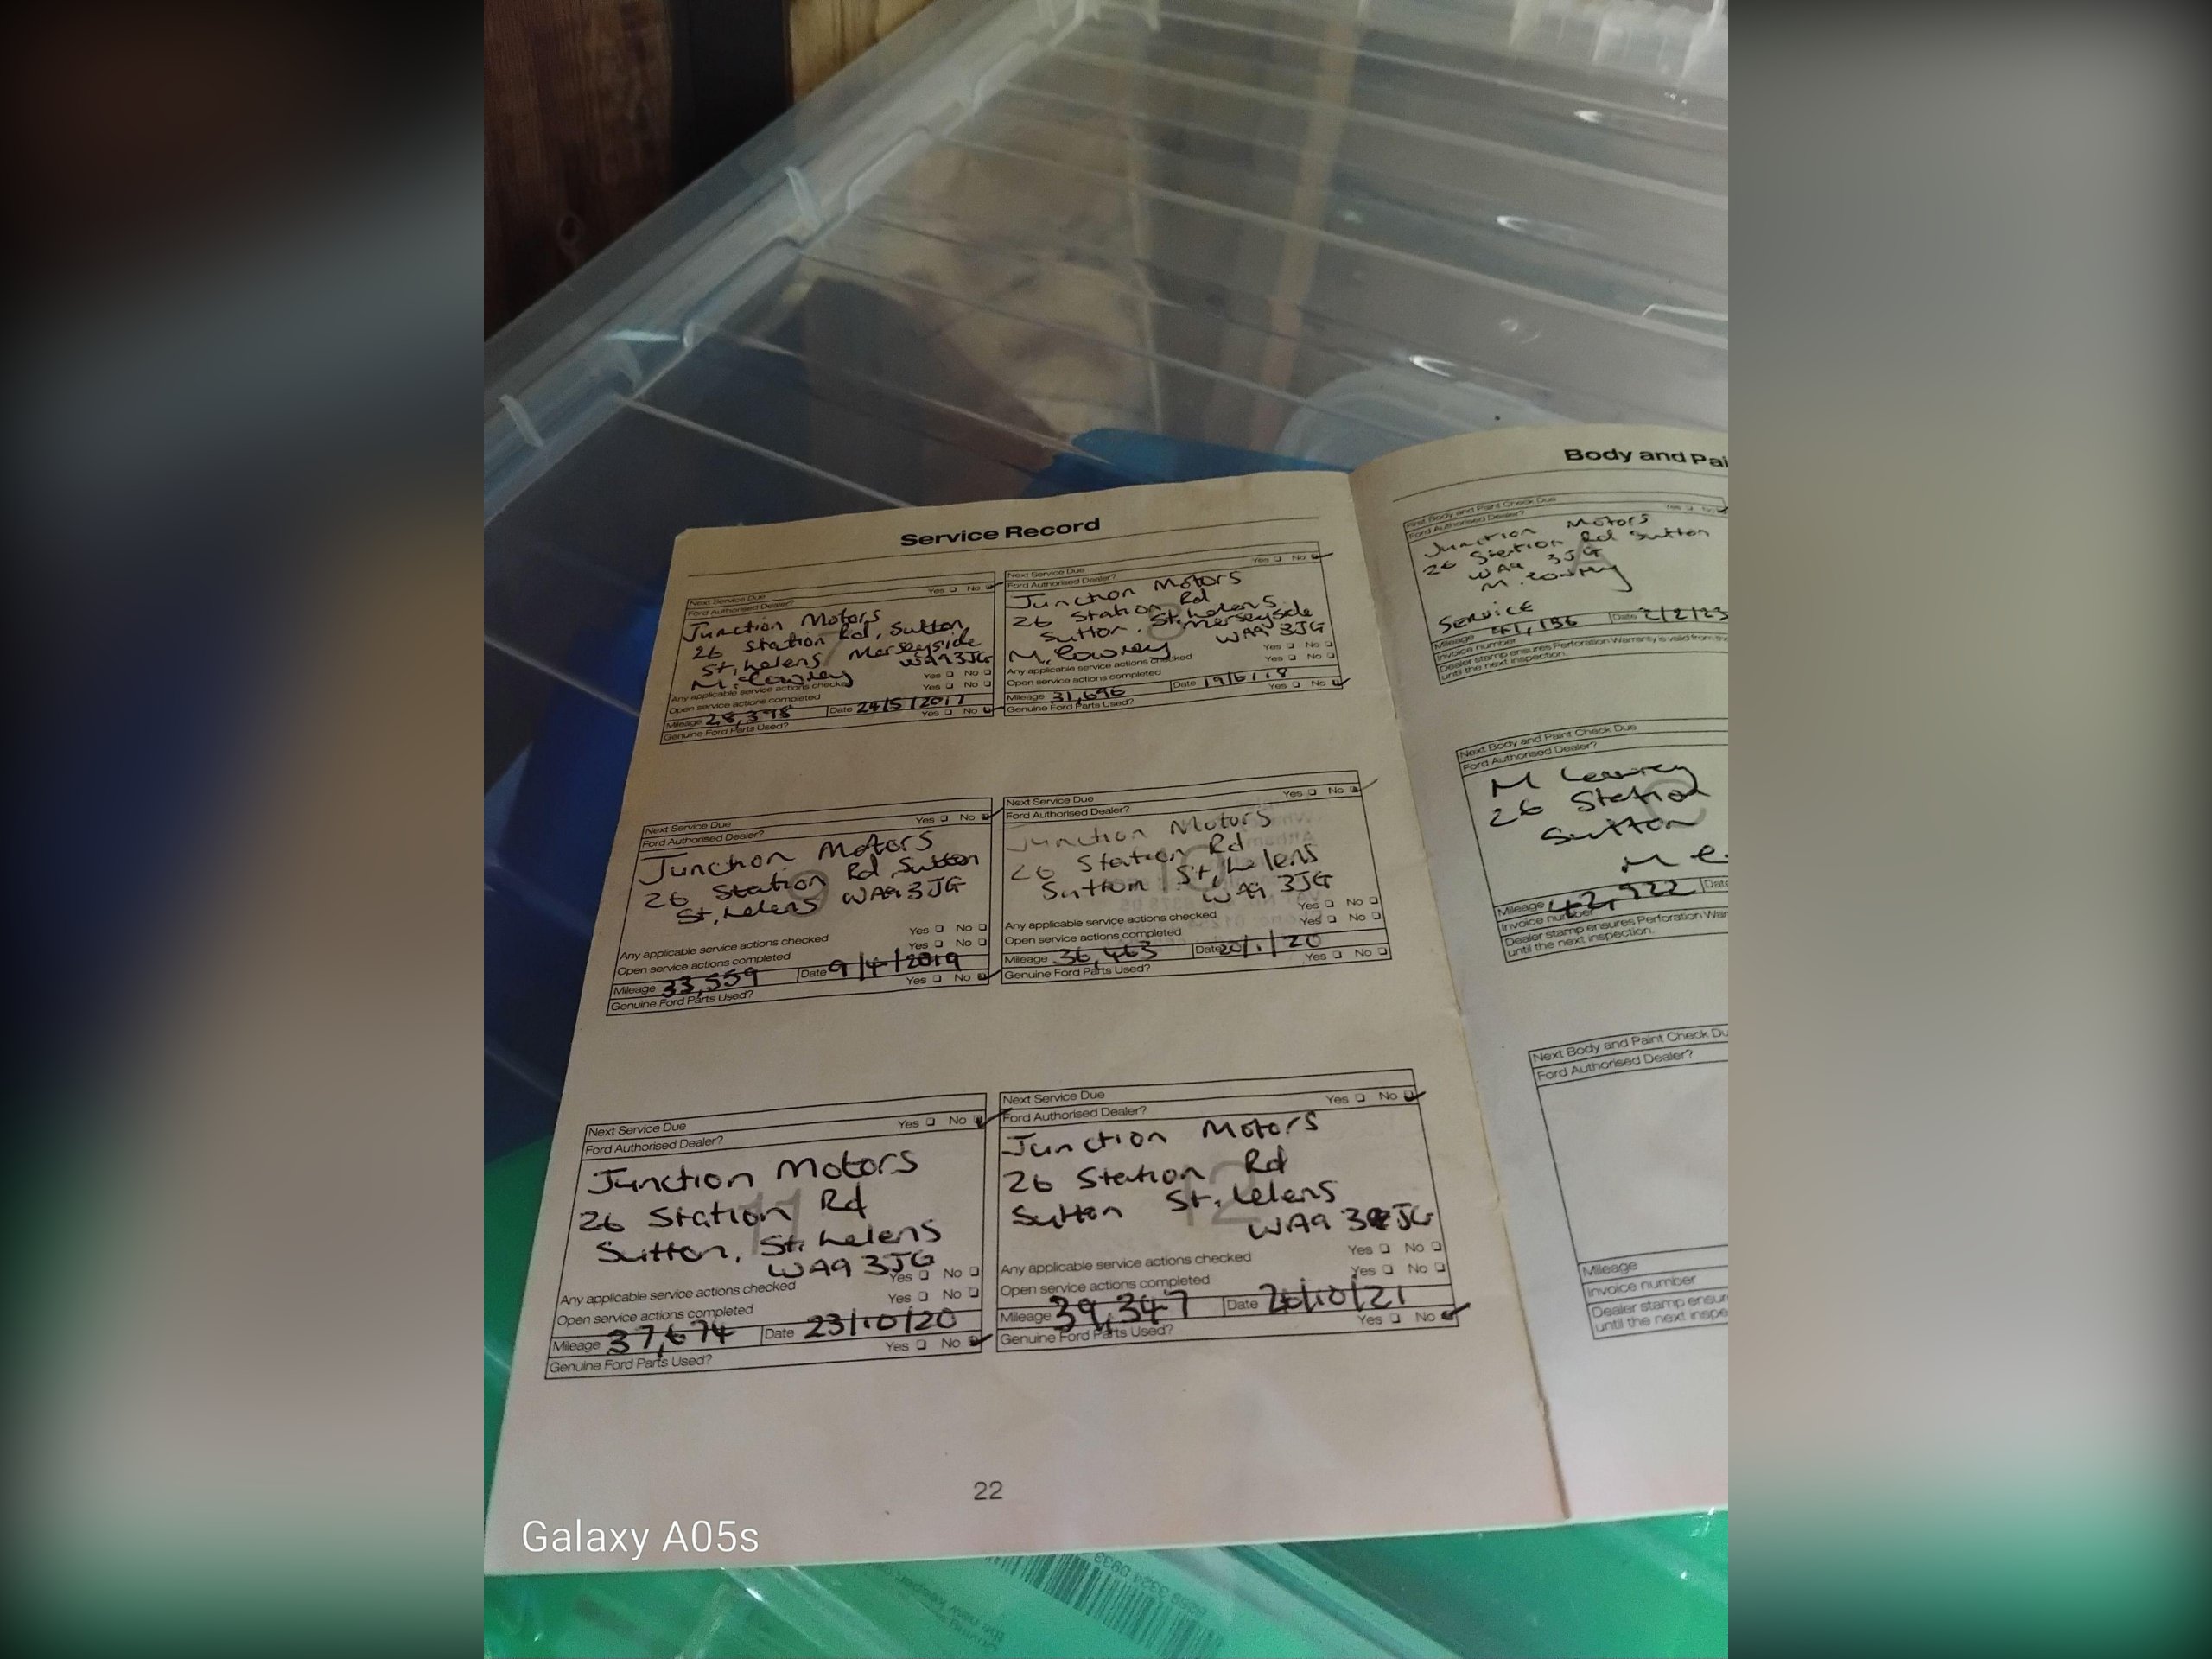 Service Record
Next Service Due
Ford Authorised Dealer? Yes No
7
Junction Motors
26 Station Rd, Sutton
St, helens Merseyside
WA9 3JG
M. Cowrey
Any applicable service actions checked Yes No
Open service actions completed Yes No
Mileage 28,398 Date 24/5/2017
Genuine Ford Parts Used? Yes No
Next Service Due
Ford Authorised Dealer? Yes No
8
Junction Motors
26 Station Rd
Sutton, St, helens
Merseyside
WA9 3JG
M. Cowrey
Any applicable service actions checked Yes No
Open service actions completed Yes No
Mileage 31,696 Date 19/6/18
Genuine Ford Parts Used? Yes No
Next Service Due
Ford Authorised Dealer? Yes No
9
Junction Motors
26 Station Rd, Sutton
St, helens WA9 3JG
Any applicable service actions checked Yes No
Open service actions completed Yes No
Mileage 33,559 Date 9/4/2019
Genuine Ford Parts Used? Yes No
Next Service Due
Ford Authorised Dealer? Yes No
10
Junction Motors
26 Station Rd
Sutton St, helens
WA9 3JG
Any applicable service actions checked Yes No
Open service actions completed Yes No
Mileage 36,463 Date 20/1/20
Genuine Ford Parts Used? Yes No
Next Service Due
Ford Authorised Dealer? Yes No
11
Junction Motors
26 Station Rd
Sutton, St. helens
WA9 3JG
Any applicable service actions checked Yes No
Open service actions completed Yes No
Mileage 37,674 Date 23/10/20
Genuine Ford Parts Used? Yes No
Next Service Due
Ford Authorised Dealer? Yes No
12
Junction Motors
26 Station Rd
Sutton St, helens
WA9 3JG
Any applicable service actions checked Yes No
Open service actions completed Yes No
Mileage 39,347 Date 26/10/21
Genuine Ford Parts Used? Yes No
22
Body and Pai
First Body and Paint Check Due
Ford Authorised Dealer? Yes No
A
Junction Motors
26 Station Rd Sutton
WA9 3JG
M. Cowrey
SERVICE
Mileage 41,136 Date 2/2/23
Invoice number
Dealer stamp ensures Perforation Warranty is valid from the
until the next inspection.
Next Body and Paint Check Due
Ford Authorised Dealer?
C
M Cowrey
26 Station
Sutton
Mileage 42,922 Date
Invoice number
Dealer stamp ensures Perforation War
until the next inspection.
Next Body and Paint Check Du
Ford Authorised Dealer?
Mileage
Invoice number
Dealer stamp ensur
until the next inspe
Galaxy A05s